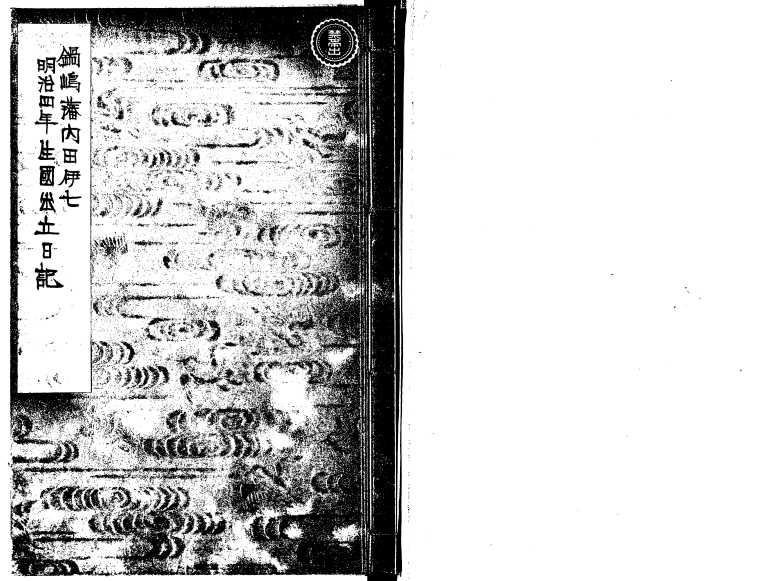 鍋嶋藩内田伊七
明治四年生國出立日記